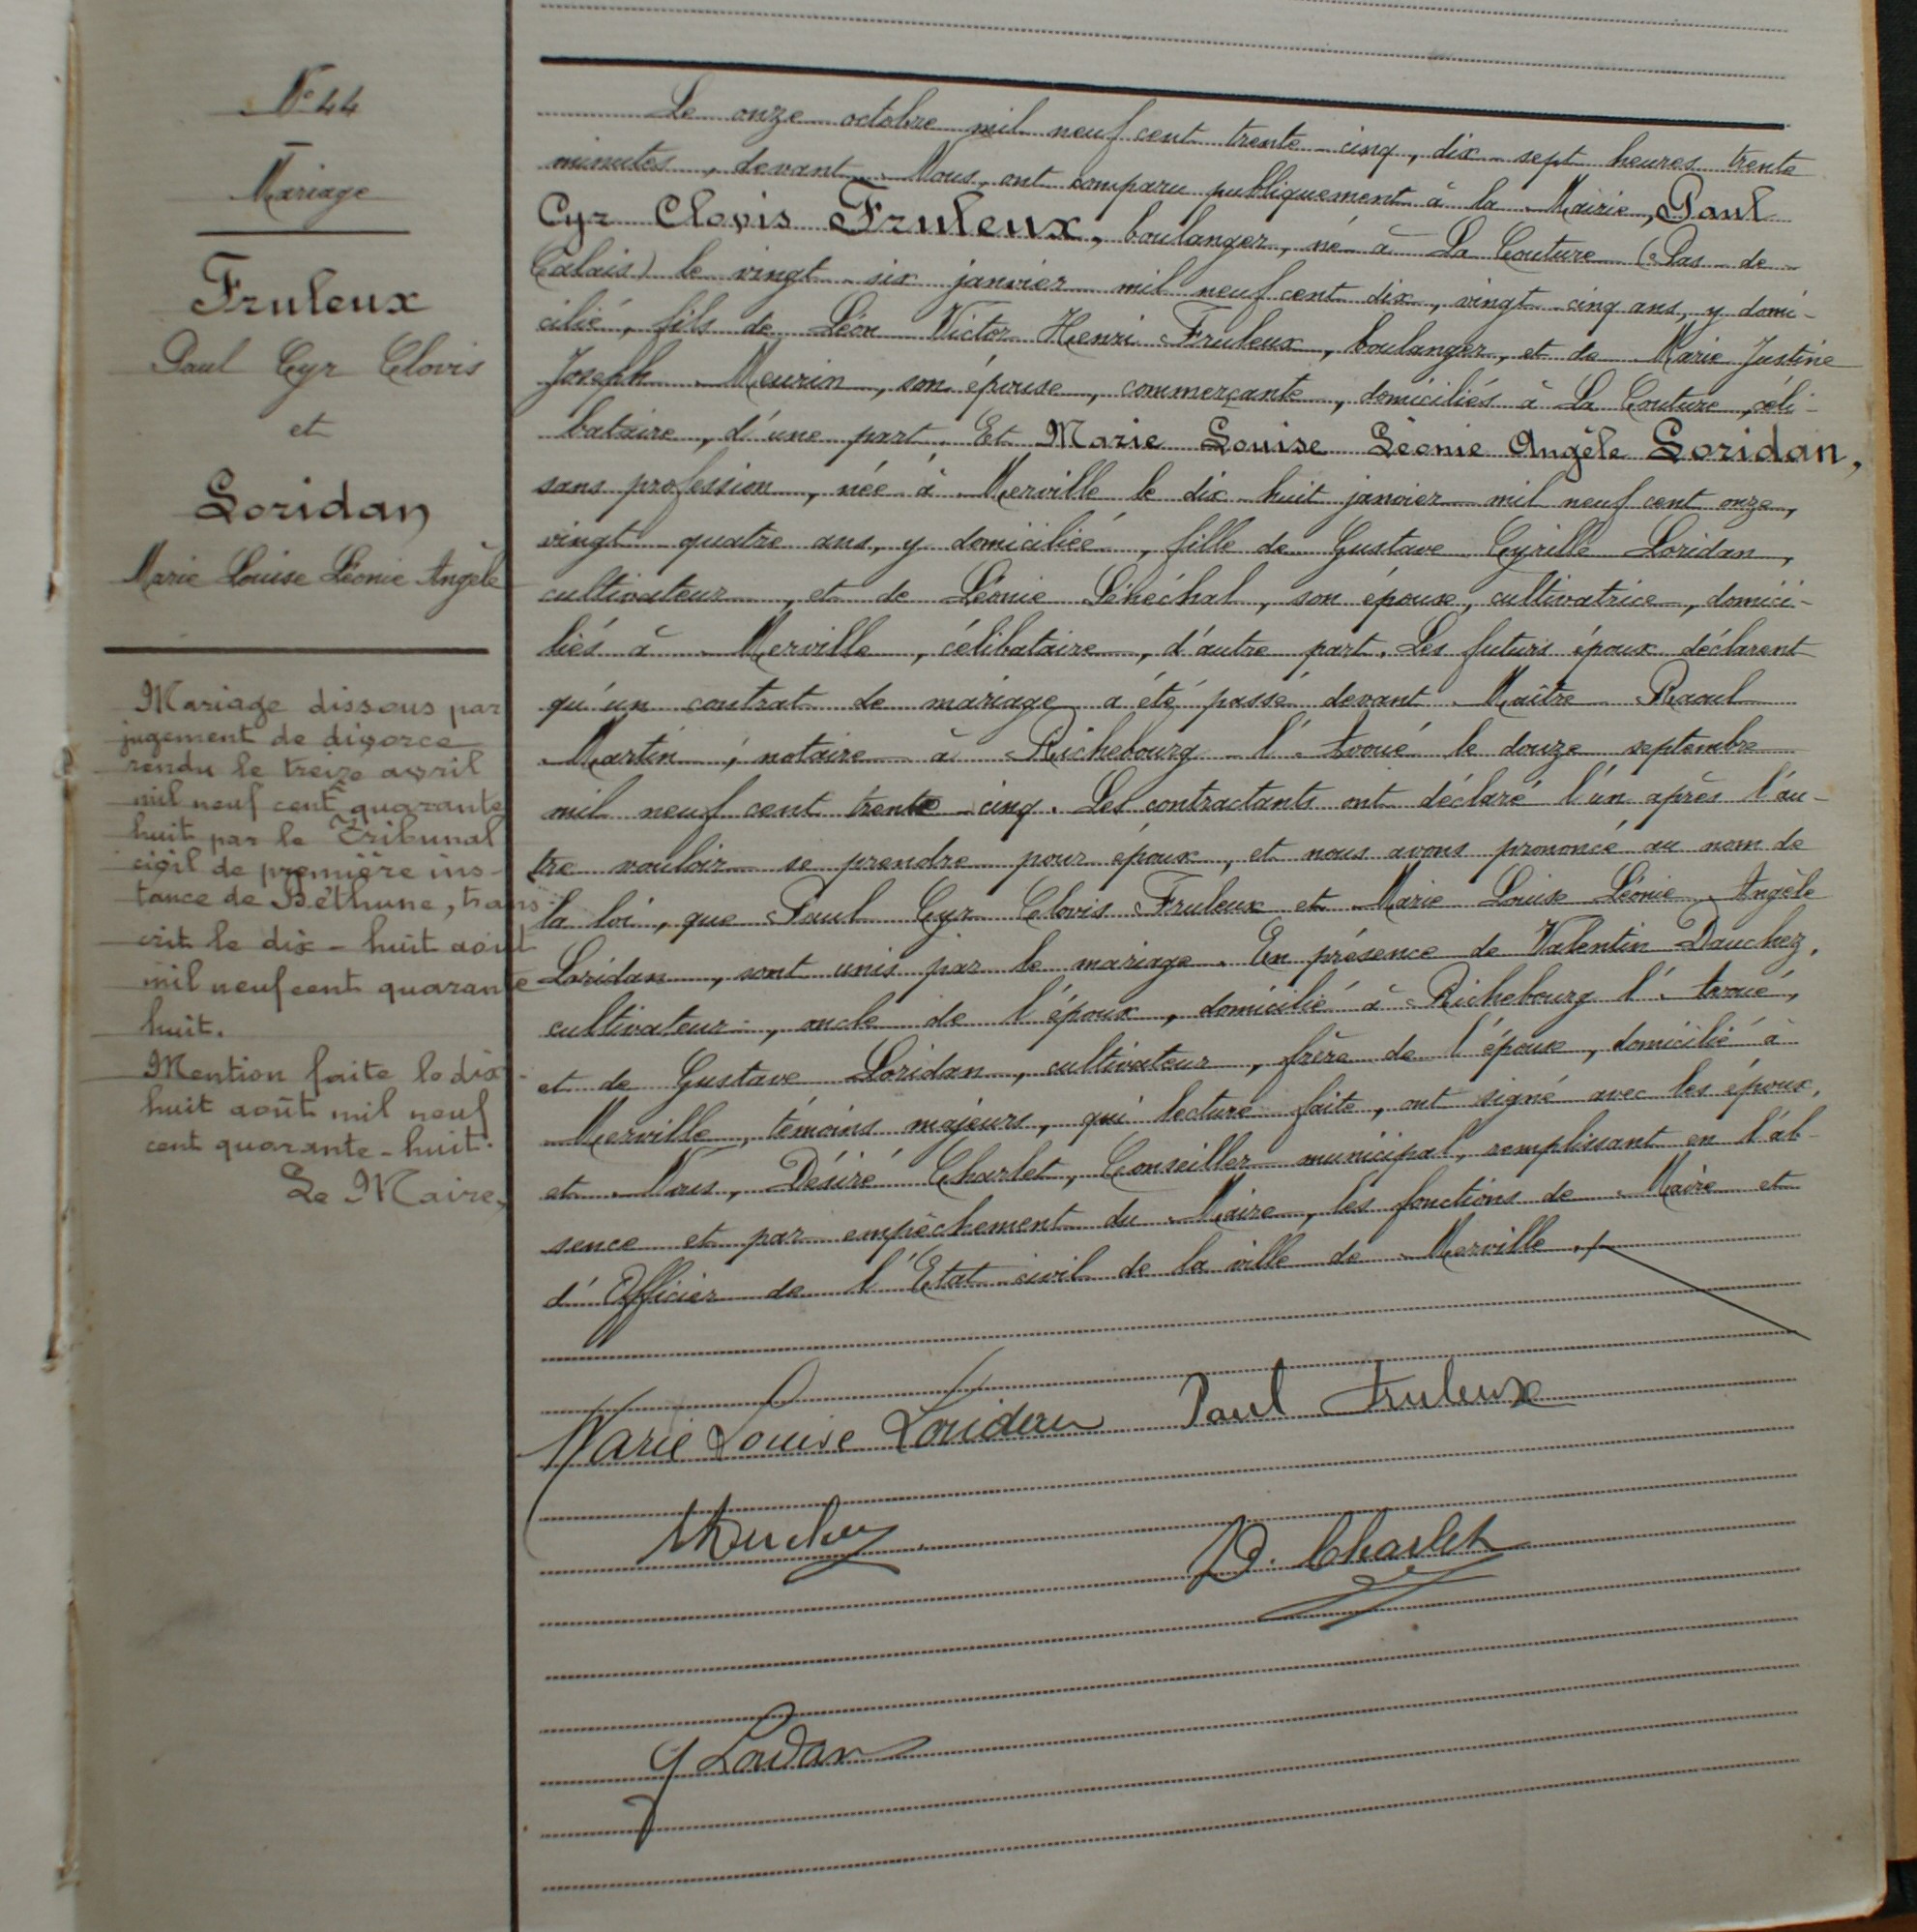 N° 44
Mariage
Fruleux
Paul Cyr Clovis
et
Loridan
Marie Louise Léonie Angèle
Mariage dissous par
jugement de divorce
rendu le treize avril
mil neuf cent quarante
huit par le Tribunal
civil de première ins-
tance de Béthune, trans-
crit le dix-huit août
mil neuf cent quarante
huit.
Mention faite le dix-
huit août mil neuf
cent quarante-huit.
Le Maire,
Le onze octobre mil neuf cent trente-cinq, dix-sept heures trente
minutes, devant Nous, ont comparu publiquement à la Mairie, Paul
Cyr Clovis Fruleux, boulanger, né à La Couture (Pas-de-
Calais) le vingt-six janvier mil neuf cent dix, vingt-cinq ans, y domi-
cilié, fils de Léon Victor Henri Fruleux, boulanger, et de Marie Justine
Joseph Meurin, son épouse, commerçante, domiciliés à La Couture, céli-
bataire, d'une part. Et Marie Louise Léonie Angèle Loridan,
sans profession, née à Merville le dix-huit janvier mil neuf cent onze,
vingt-quatre ans, y domiciliée, fille de Gustave Cyrille Loridan,
cultivateur, et de Léonie Sénéchal, son épouse, cultivatrice, domici-
liés à Merville, célibataire, d'autre part. Les futurs époux déclarent
qu'un contrat de mariage a été passé devant Maître Raoul
Martin, notaire à Richebourg-l'Avoué le douze septembre
mil neuf cent trente-cinq. Les contractants ont déclaré l'un après l'au-
tre vouloir se prendre pour époux, et nous avons prononcé au nom de
la loi, que Paul Cyr Clovis Fruleux et Marie Louise Léonie Angèle
Loridan, sont unis par le mariage. En présence de Valentin Dauchez,
cultivateur, oncle de l'époux, domicilié à Richebourg l'Avoué,
et de Gustave Loridan, cultivateur, frère de l'épouse, domicilié à
Merville, témoins majeurs, qui lecture faite, ont signé avec les époux,
et Nous, Désiré Charlet, Conseiller municipal, remplissant en l'ab-
sence et par empêchement du Maire, les fonctions de Maire et
d'Officier de l'Etat-civil de la ville de Merville ./.
Marie Louise Loridan Paul Fruleux
VDauchez
D. Charlet
G Loridan